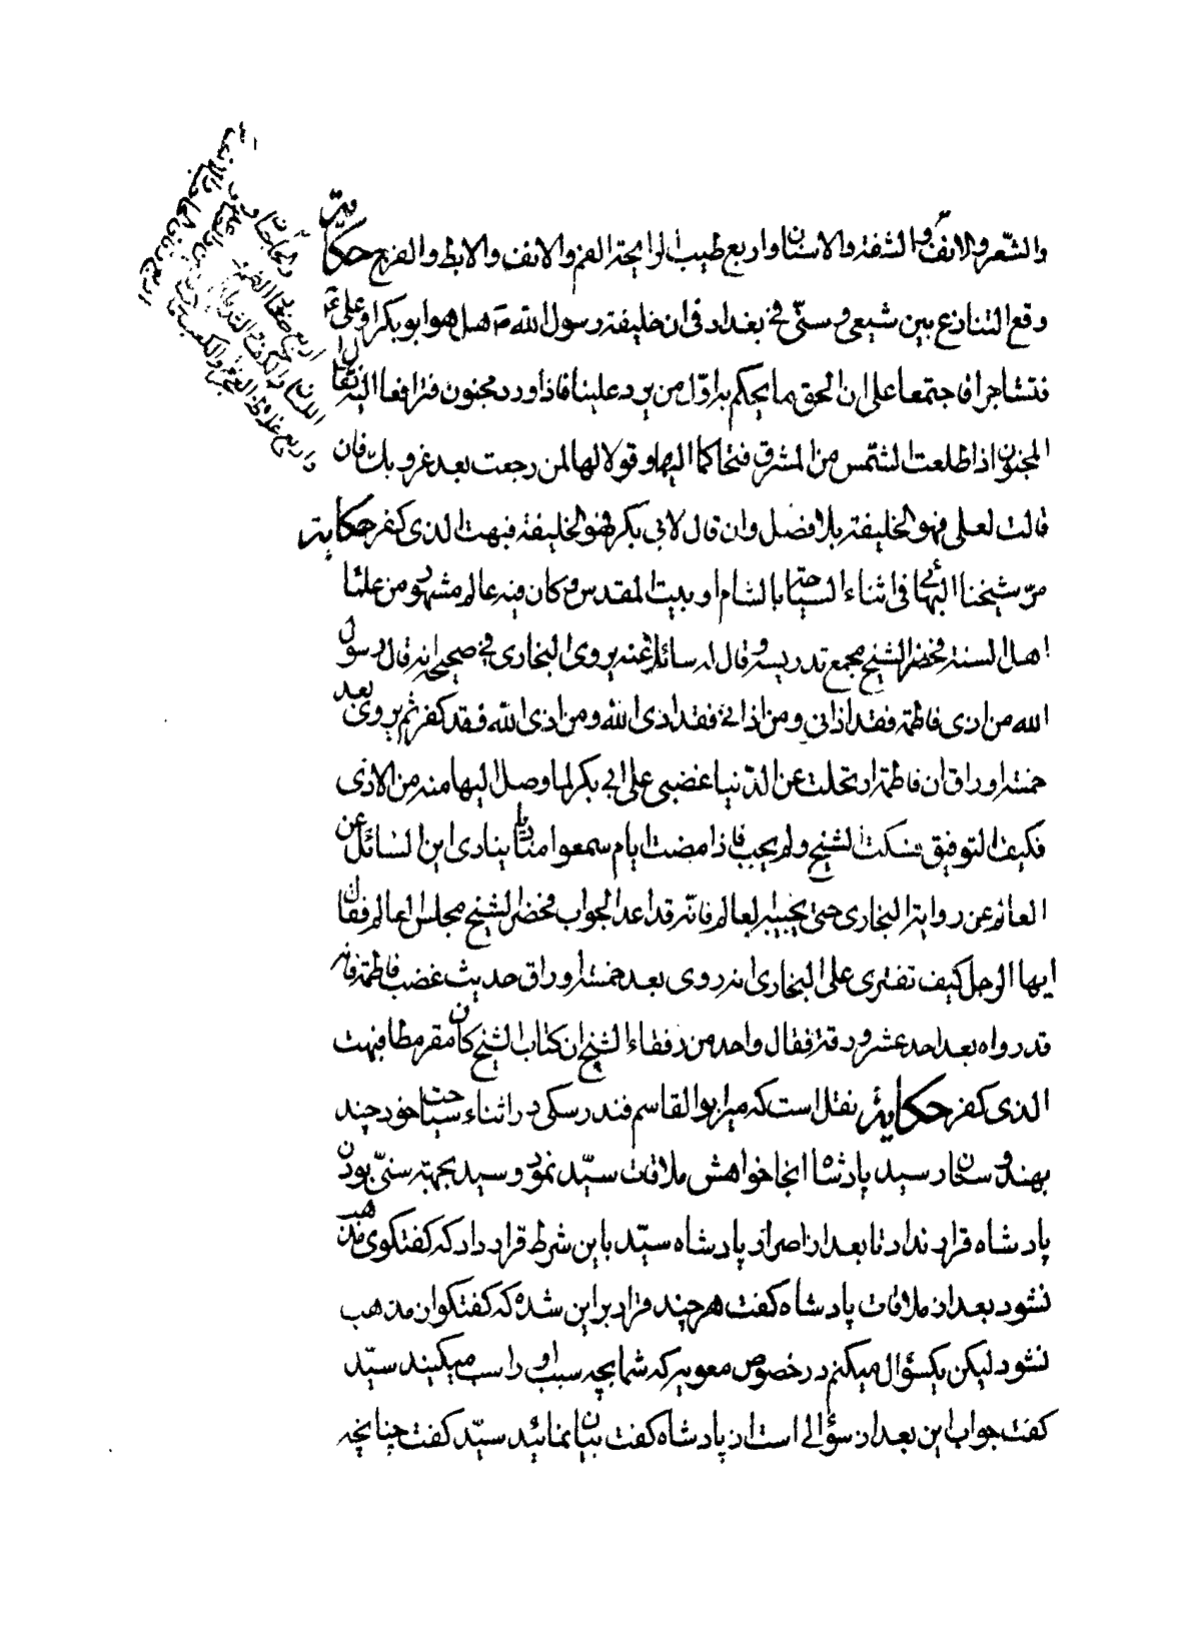 والشّعر والانف والشفة والاسنان واربع طيب الرايحة الفم والانف والابط والفرج حكاية
وقع التنازع بين شيعى و سنّى فى بغداد فى ان خليفة رسول الله ص هل هو ابو بكر او على ع
فتشاجرا فاجتمعا على ان الحق ما يحكم به اوّل من يرد علينا فاذا ورد مجنون فترافعا اليه فقال
المجنون اذا طلعت الشمس من المشرق فتحاكما اليها وقولا لها لمن رجعت بعد غروبك فان
قالت لعلى فهو الخليفة بلا فضل وان قال لابى بكر فهو الخليفة فبهت الذى كفر حكاية
مرّ شيخنا البهائى فى اثناء السياحة بالشام او بيت المقدس و كان فيه عالم مشهور من علماء
اهل السنة فحضر الشيخ مجمع تدريسه و قال له سائلا عنه يروى البخارى فى صحيحه انه قال رسول
الله من اذى فاطمة فقد اذانى و من اذانى فقد اذى الله و من اذى الله فقد كفر ثم يروى بعد
خمسة اوراق ان فاطمة ارتحلت عن الدّنيا غضبى على ابى بكر لما وصل اليها منه من الاذى
فكيف التوفيق فسكت الشيخ و لم يجب فاذا مضت ايام سمعوا مناديا ينادى اين السائل عن
العالم عن رواية البخارى حتى يجيبه العالم فانّه قد اعد الجواب فحضر الشيخ مجلس العالم فقال
ايها الرجل كيف تفترى على البخارى انه روى بعد خمسة اوراق حديث غضب فاطمة فانه
قد رواه بعد احد عشر ورقة فقال واحد من رفقاء الشيخ ان كتاب الشيخ كان مقرمطا فبهت
الذى كفر حكاية نقل است كه ميرابوالقاسم فندرسكى در اثناء سياحت خود چند
بهندوستان رسيد پادشاه انجا خواهش ملاقات سيّد نمود و سيد بجهته سنّى بودن
پادشاه قرار نداد تا بعد از اصرار پادشاه سيّد باين شرط قرار داد كه گفتگوى مذهب
نشود بعد از ملاقات پادشاه گفت هر چند قرار بر اين شده كه گفتگو از مذهب
نشود ليكن يك سؤال ميكنم در خصوص معويه كه شما بچه سبب او را سب ميكنيد سيّد
گفت جواب اين بعد از سؤالى است از پادشاه گفت بيان نمائيد سيّد گفت چنانچه